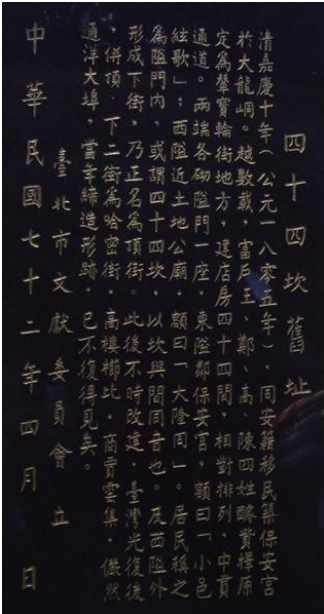 四十四坎舊址
清嘉慶十年(公元一八零五年),同安籍移民築保安宮
於大龍峒。越數載,富戶王、鄭、高、陳四姓購賞擇原
定為葦寶輪街地方,建店房四十四間,相對排列,中貫
通道。兩端各砌隘門一座,東隘鄰保安宮,額曰「小邑
絃歌」;西隘近土地公廟,額曰「大隆同」。居民稱之
為隘門內,或謂四十四坎,以坎與間同音也。及西隘外
形成下街,乃正名為頂街。此後不時改造,臺灣光復後
,併頂、下二街為哈密街,高樓櫛比,商賈雲集,儼然
通洋大埠,當年締造形跡,已不復得見矣。
臺北市文獻委員會 立
中華民國七十二年四月 日